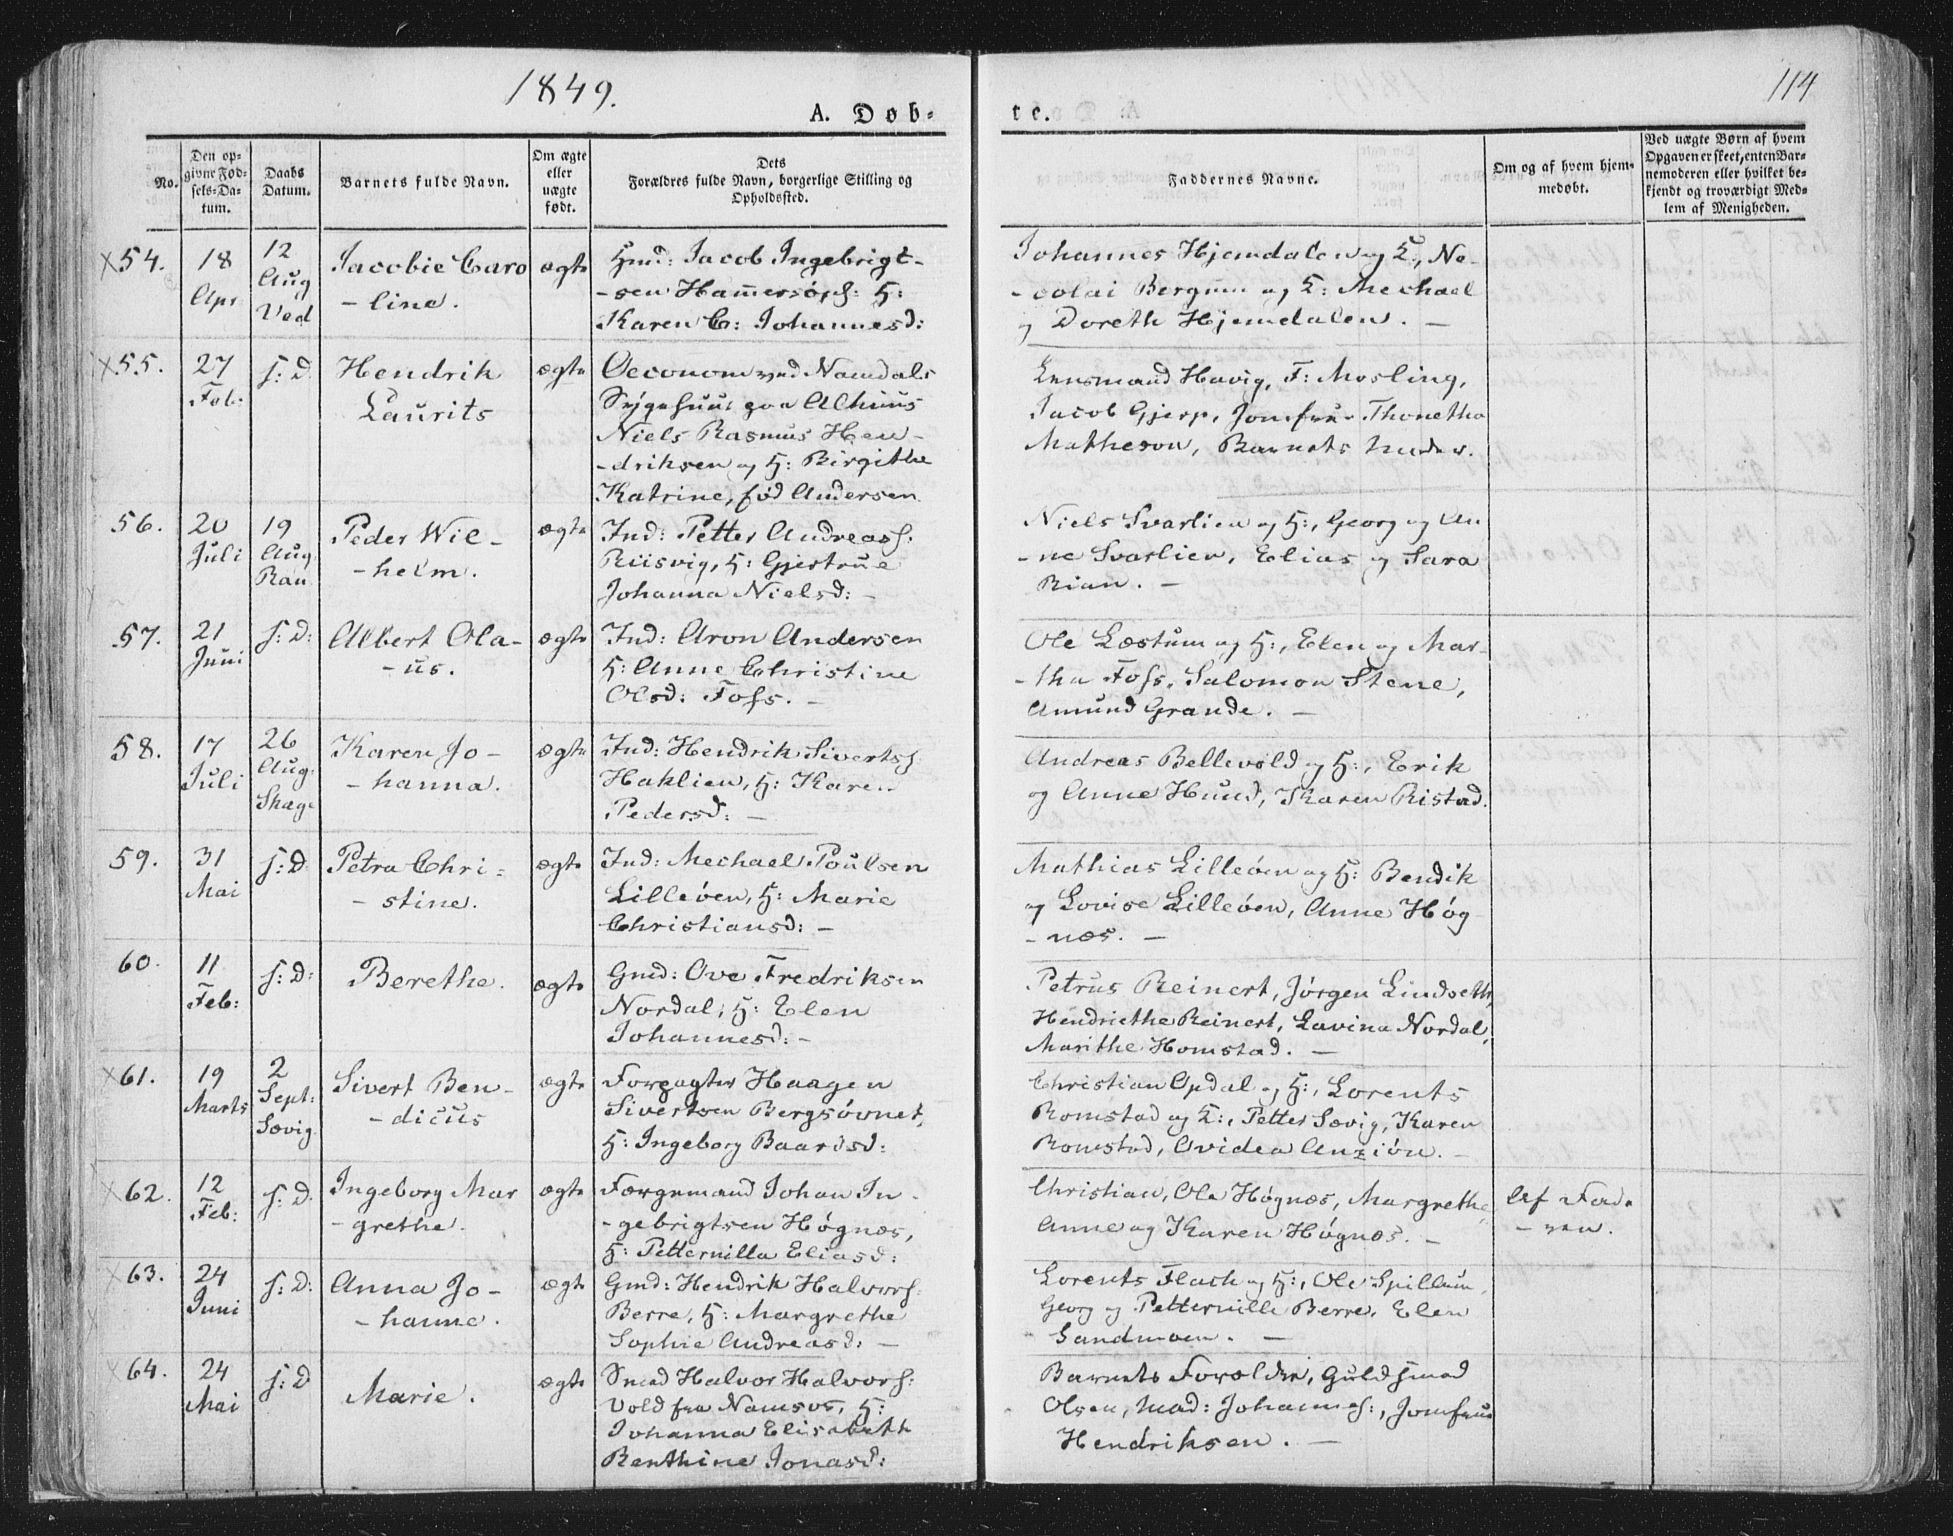 1849.
114
A. Døb-
te.
No.
Den op-
givne Fød-
sels-Da-
tum.
Daabs
Datum.
Barnets fulde Navn.
Om ægte
eller
uægte
født.
Dets
Forældres fulde Navn, borgerlige Stilling og
Opholdssted.
Faddernes Navne.
Om og af hvem hjem-
medøbt.
Ved uægte Børn af hvem
Opgaven er skeet, enten Bar-
nemoderen eller hvilket be-
kjendt og troværdigt Med-
lem af Menigheden.
×54.
18
Apr.
12
Aug
Ved
Jacobie Caro
-line.
ægte
Hmd: Jacob Ingebrigt-
-sen Hammersöph: H:
Karen C: Johannesd:
Johannes Hjemdalen og H:, Ne-
-colai Bergum og H: Mechael
og Doreth Hjemdalen. -
×55.
27
Feb:
s: D.
Hendrik
Laurits
ægte
Oeconom ved Namdals
Sygehuus paa Alhuus
Niels Rasmus Hen-
-driksen og H: Birgithe
Katrine, fød Andersen
Lensmand Havig, F: Mosling,
Jacob Gjerp, Jomfrue Thonetha
Matheson, Barnets Moder.
56.
20
Juli
19
Aug
Ran
Peder Wil-
-helm.
ægte
Ind: Petter Andreass.
Riisvig, H: Gjertrue
Johanna Nielsd: -
Niels Svarlien og H:, Georg og An
-ne Svarlien, Elias og Sara
Rian. -
57.
21
Juni
s: D:
Albert Ola-
-us.
ægte
Ind: Aron Andersen
H: Anne Christine
Olsd: Foss. -
Ole Læstum og H:, Elen og Mar-
-tha Foss, Salomon Stene,
Amund Grande. -
58.
17
Juli
26
Aug.
Skage
Karen Jo-
-hanna.
ægte
Ind: Hendrik Sivertss.
Haklien, H: Karen
Pedersd: -
Andreas Bellevold og H:, Erik
og Anne Hund, Karen Ristad.
59.
31
Mai
s: D
Petra Chri-
-stine.
ægte
Ind: Mechael Poulsen
Lilleöen, H: Marie
Christiansd: -
Mathias Lilleöen og H: Bendik
og Lovise Lilleöen, Anne Høg
-næs. -
60.
11
Feb:
s: D:
Berethe.
ægte
Gmd: Ove Fredriksen
Nordal, H: Elen
Johannesd: -
Petrus Reinert, Jørgen Lindseth,
Hendriethe Reinert, Lavina Nordal,
Marithe Homstad. -
×61.
19
Marts
2
Sept:
Sævig
Sivert Ben-
-dicius
ægte
Forpagter Haagen
Sivertsen Bergsövnet,
H: Ingeborg Baardsd:
Christian Opdal og H:, Lorents
Romstad og H:, Petter Sævig, Karen
Romstad, Ovidea Anziön. -
×62.
12
Feb:
s: D.
Ingeborg Mar
-grethe.
ægte
Færgemand Johan In-
-gebrigtsen Høgnæs,
H: Petternilla Eliasd:
Christian, Ole Høgnæs, Margrethe,
Anne og Karen Høgnæs. -
Af Fade-
-ren.
×63.
24
Juni
s: D:
Anna Jo-
-hanne.
ægte
Gmd: Hendrik Halvors:
Berre, H: Margrethe
Sophie Andreasd: -
Lorents Flach og H:, Ole Spillum,
Georg og Petternille Berre, Elen
Sandmoen. -
×64.
24
Mai
s: D
Marie.
ægte
Smed Halvor Halvors:
Vold fra Namsos, H:
Johanna Elisabeth
Benthine Jonasd:
Barnets Forældre, Guldsmed
Olsen, Mad: Johannes:, Jomfrue
Hendriksen. -